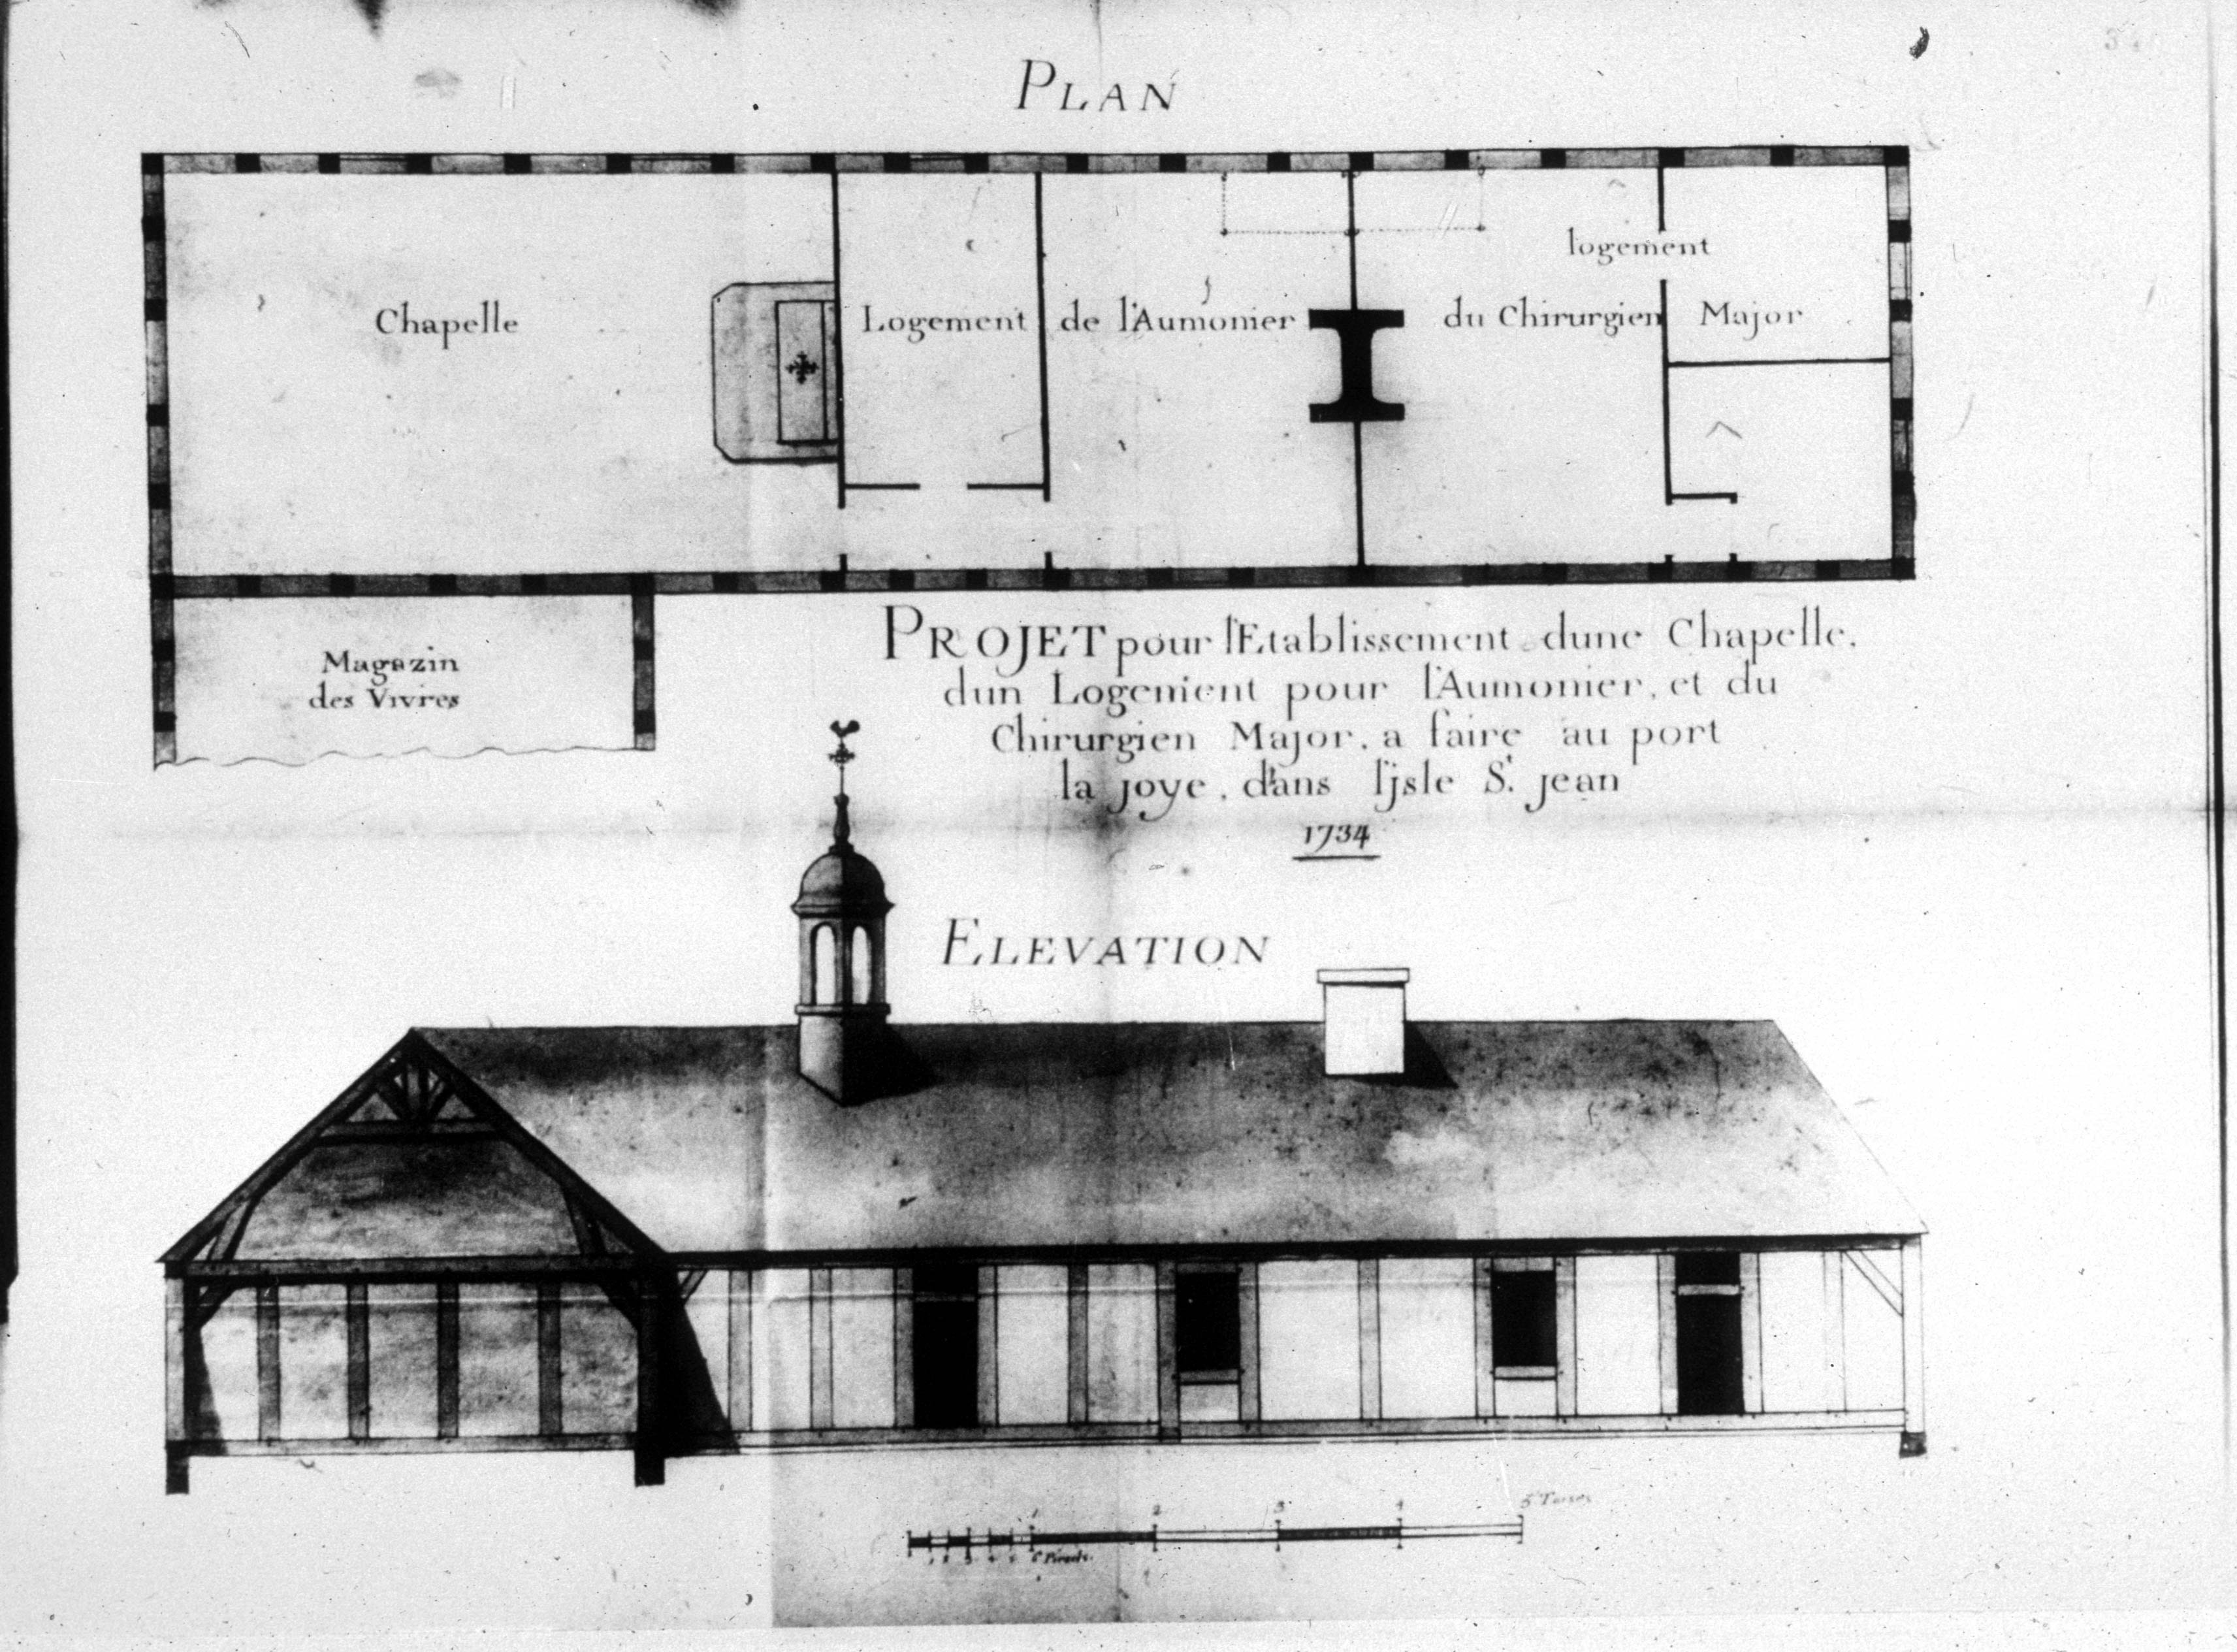 PLAN
logement
Chapelle Logement de l'Aumonier du Chirurgien Major
PROJET pour l'Etablissement dune Chapelle,
dun Logement pour l'Aumonier, et du
Chirurgien Major, a faire au port
la joye, dans l'jsle St. jean
1734
Magazin
des Vivres
ELEVATION
1 2 3 4 5 Toises
1 2 3 4 5 6 Pieds.